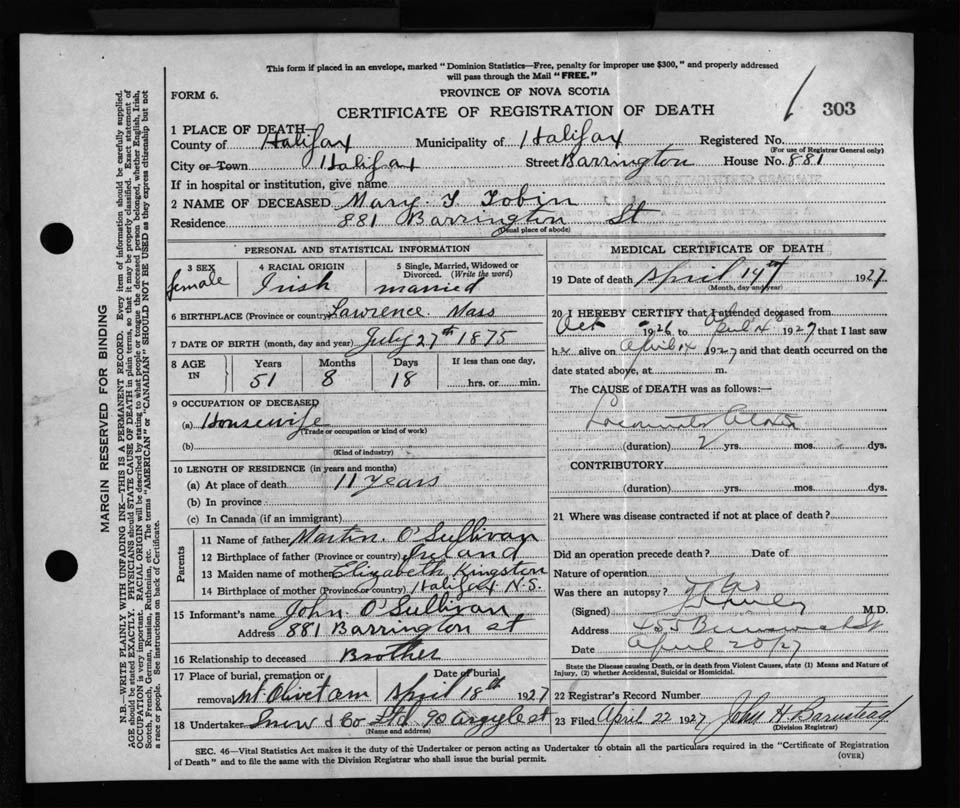 This form if placed in an envelope, marked "Dominion Statistics—Free, penalty for improper use $300," and properly addressed
will pass through the Mail "FREE."
FORM 6.
PROVINCE OF NOVA SCOTIA
CERTIFICATE OF REGISTRATION OF DEATH
303
1 PLACE OF DEATH—
County of Halifax Municipality of Halifax Registered No.
(For use of Registrar General only)
City or Town Halifax Street Barrington House No. 881
If in hospital or institution, give name
2 NAME OF DECEASED Mary. T Tobin
Residence 881 Barrington St
(Usual place of abode)
PERSONAL AND STATISTICAL INFORMATION
3 SEX female
4 RACIAL ORIGIN Irish
5 Single, Married, Widowed or Divorced. (Write the word) married
6 BIRTHPLACE (Province or country) Lawrence. Mass
7 DATE OF BIRTH (month, day and year) July 27th 1875
8 AGE IN Years 51 Months 8 Days 18 If less than one day, hrs. or min.
9 OCCUPATION OF DECEASED
(a) Housewife
(Trade or occupation or kind of work)
(b)
(Kind of industry)
10 LENGTH OF RESIDENCE (in years and months)
(a) At place of death 11 years
(b) In province
(c) In Canada (if an immigrant)
Parents
11 Name of father Martin. O'Sullivan
12 Birthplace of father (Province or country) Ireland
13 Maiden name of mother Elizabeth Kingston
14 Birthplace of mother (Province or country) Halifax N.S.
15 Informant's name John O'Sullivan
Address 881 Barrington st
16 Relationship to deceased Brother
17 Place of burial, cremation or removal Mt Olivet am Date of burial April 18th 1927
18 Undertaker Snow & Co Ltd 90 Argyle st
(Name and address)
MEDICAL CERTIFICATE OF DEATH
19 Date of death April 14th 1927
(Month, day and year)
20 I HEREBY CERTIFY that I attended deceased from
Oct 1926 to April 14 1927 that I last saw
h er alive on April 14 1927 and that death occurred on the
date stated above, at m.
The CAUSE of DEATH was as follows:—
Locomotor Ataxia
(duration) 2 yrs. mos. dys.
CONTRIBUTORY
(duration) yrs. mos. dys.
21 Where was disease contracted if not at place of death?
Did an operation precede death? Date of
Nature of operation
Was there an autopsy? No
(Signed) M.D.
Address 455
Date April 20/27
State the Disease causing Death, or in death from Violent Causes, state (1) Means and Nature of
Injury, (2) whether Accidental, Suicidal or Homicidal.
22 Registrar's Record Number
23 Filed April 22 1927 John H. Barnstead
(Division Registrar)
SEC. 46—Vital Statistics Act makes it the duty of the Undertaker or person acting as Undertaker to obtain all the particulars required in the "Certificate of Registration
of Death" and to file the same with the Division Registrar who shall issue the burial permit.
(OVER)
MARGIN RESERVED FOR BINDING
N.B.—WRITE PLAINLY WITH UNFADING INK—THIS IS A PERMANENT RECORD. Every item of information should be carefully supplied.
AGE should be stated EXACTLY. PHYSICIANS should STATE CAUSE OF DEATH in plain terms, so that it may be properly classified. Exact statement of
OCCUPATION is very important. RACIAL ORIGIN will be described by stating to what people or tongue the deceased person belonged, whether English, Irish,
Scotch, French, German, Russian, Ruthenian, etc. The terms "AMERICAN" or "CANADIAN" SHOULD NOT BE USED as they express citizenship but not
a race or people. See instructions on back of Certificate.